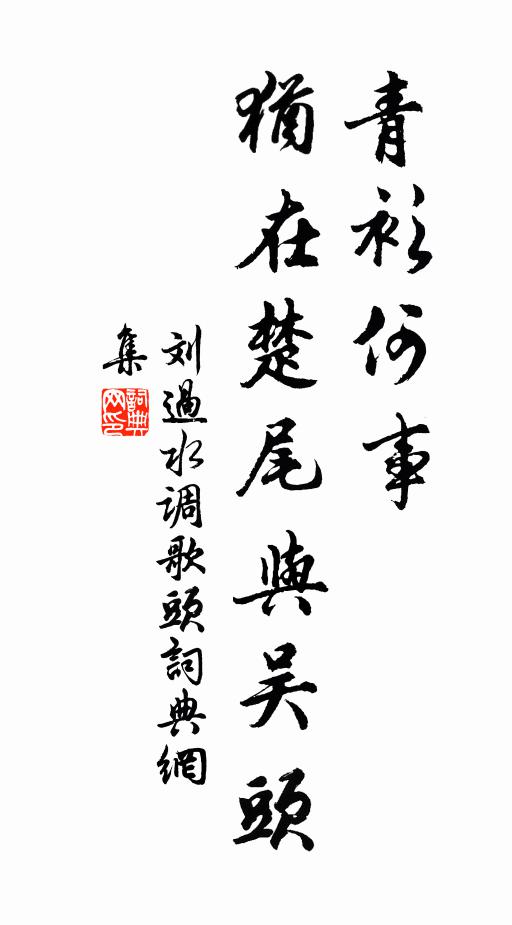 青衫何事
猶在楚尾與吴頭
刘過水调歌頭詞典網
集
詞典
网印